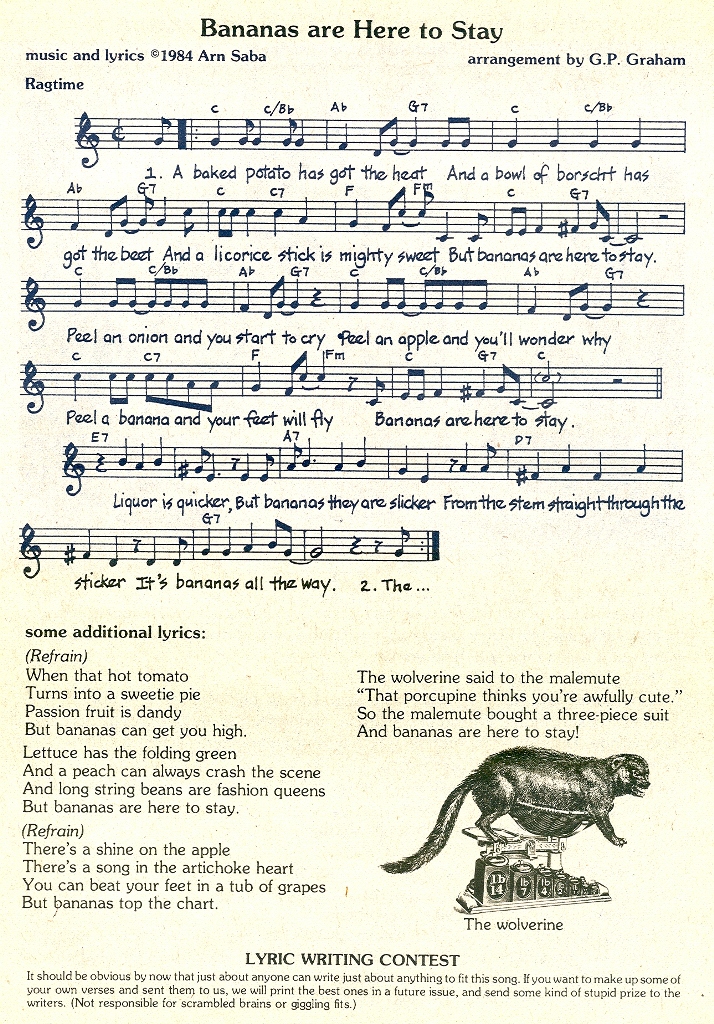 Bananas are Here to Stay
music and lyrics ©1984 Arn Saba
arrangement by G.P. Graham
Ragtime
C C/Bb Ab G7 C C/Bb
1. A baked potato has got the heat And a bowl of borscht has
Ab G7 C C7 F Fm C G7
got the beet And a licorice stick is mighty sweet But bananas are here to stay.
C C/Bb Ab G7 C C/Bb Ab G7
Peel an onion and you start to cry Peel an apple and you'll wonder why
C C7 F Fm C G7 C
Peel a banana and your feet will fly Bananas are here to stay.
E7 A7 D7
Liquor is quicker, But bananas they are slicker From the stem straight through the
G7
sticker It's bananas all the way. 2. The...
some additional lyrics:
(Refrain)
When that hot tomato
Turns into a sweetie pie
Passion fruit is dandy
But bananas can get you high.
Lettuce has the folding green
And a peach can always crash the scene
And long string beans are fashion queens
But bananas are here to stay.
(Refrain)
There's a shine on the apple
There's a song in the artichoke heart
You can beat your feet in a tub of grapes
But bananas top the chart.
The wolverine said to the malemute
“That porcupine thinks you're awfully cute.”
So the malemute bought a three-piece suit
And bananas are here to stay!
lb 14 lb 7
The wolverine
LYRIC WRITING CONTEST
It should be obvious by now that just about anyone can write just about anything to fit this song. If you want to make up some of
your own verses and sent them to us, we will print the best ones in a future issue, and send some kind of stupid prize to the
writers. (Not responsible for scrambled brains or giggling fits.)